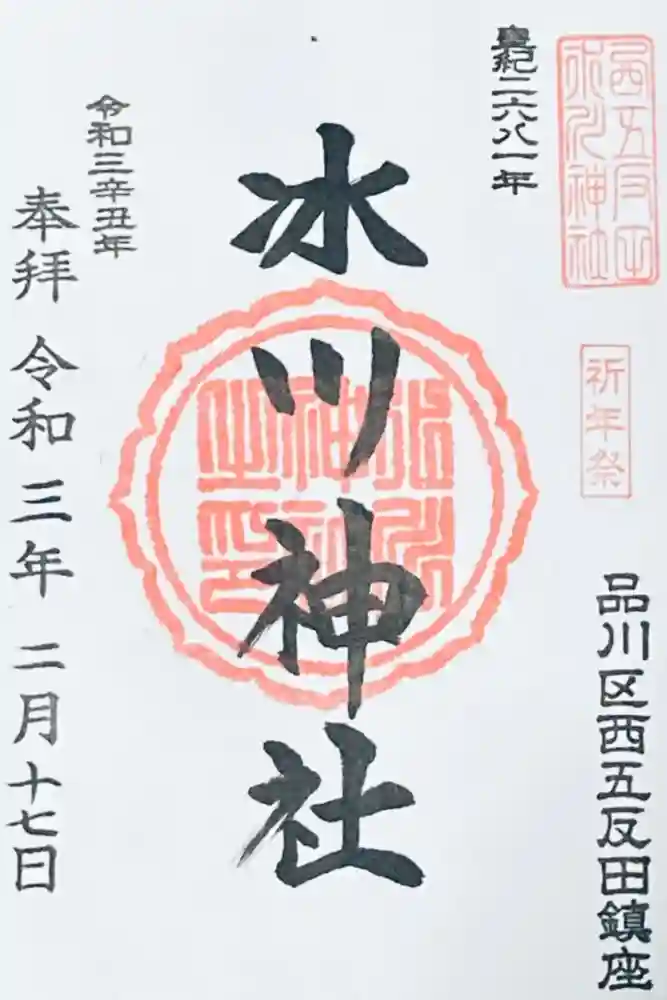 西五反田
氷川神社
皇紀二六八一年
祈年祭
品川区西五反田鎮座
氷川神社
氷川
神社
之印
令和三辛丑年
奉拝 令和三年 二月十七日